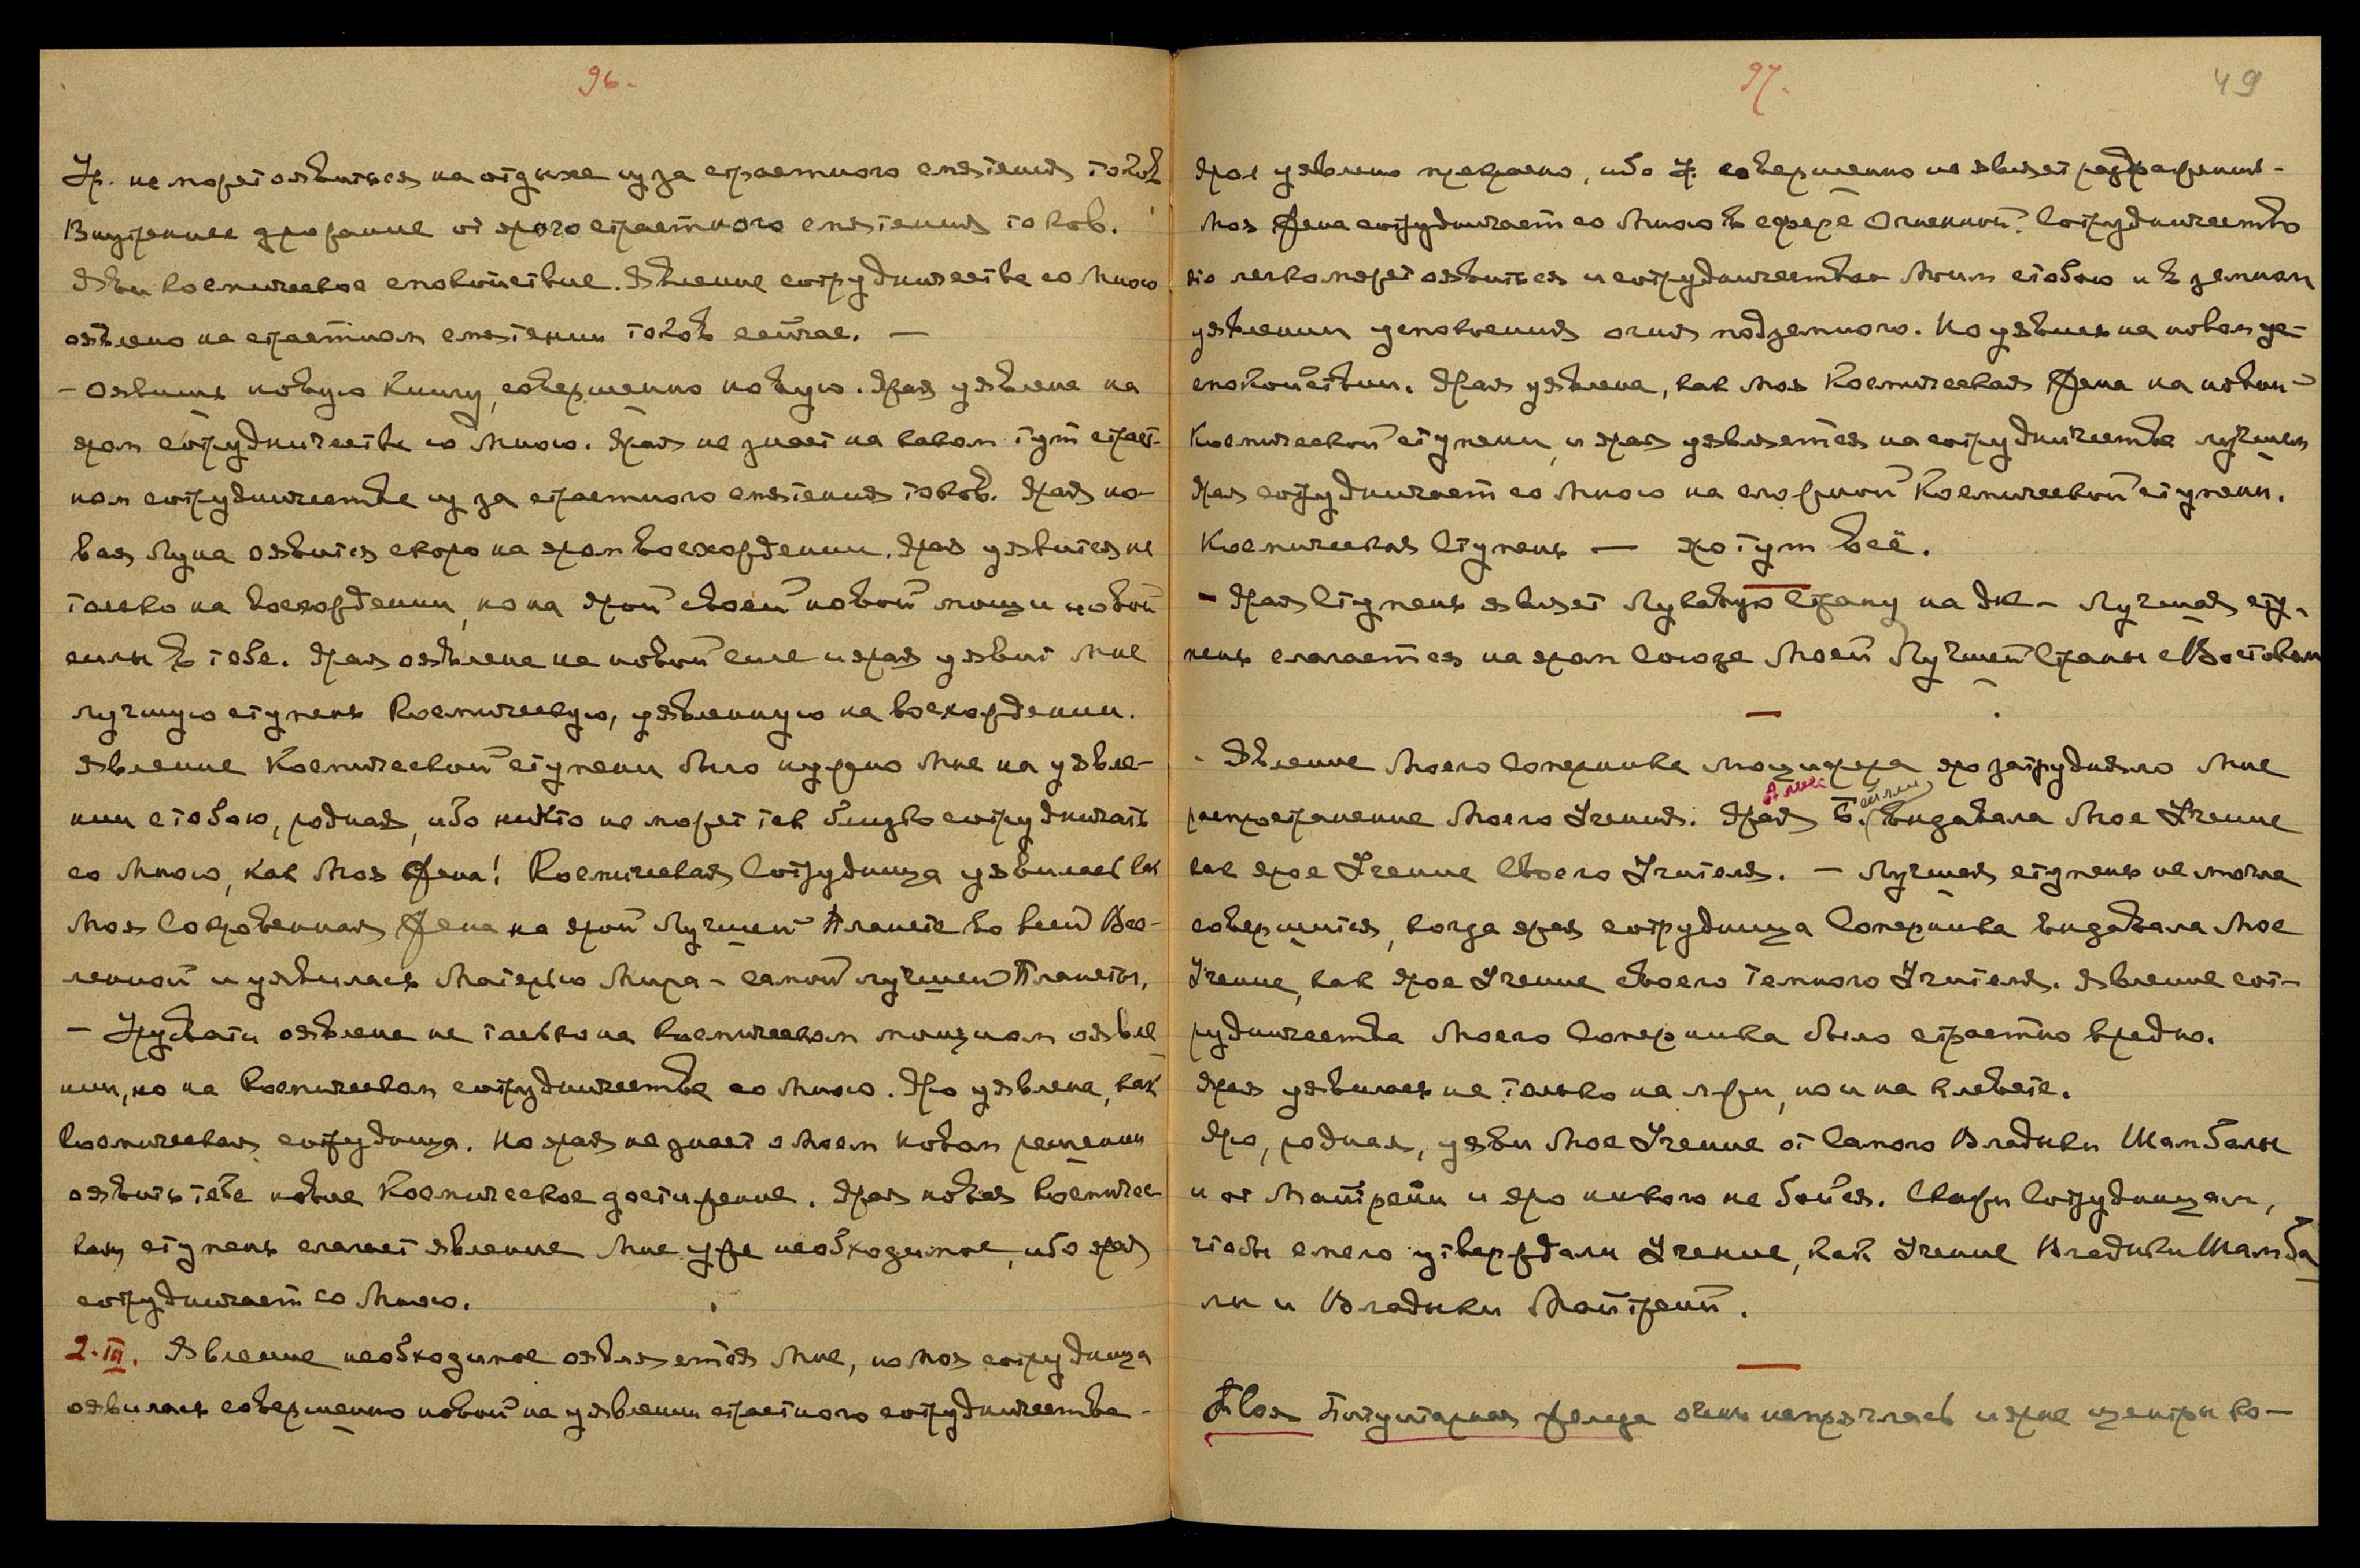 96.
Ур. не может оявиться на отдыхе из за страстного смятения токов
Внутреннее дрожание от ярого страстного смятения токов.
Яви космическое спокойствие. Явление сотрудничества со Мною
оявлено на страстном смятении токов сейчас. —
— Оявишь новую книгу, совершенно новую. Ярая уявлена на
яром сотрудничестве со Мною. Ярая не знает на каком тут страст-
ном сотрудничестве из за страстного смятения токов. Ярая но-
вая Луна оявится скоро на яром восхождении. Ярая уявится не
только на восхождении, но на ярой своей новой мощи и новой
силы в тебе. Ярая оявлена на новой силе и ярая уявит Мне
лучшую ступень Космическую, уявленную на восхождении.
Явление Космической ступени было нужно Мне на уявле-
нии с тобою, родная, ибо никто не может так близко сотрудничать
со Мною, как Моя Жена! Космическая Сотрудница уявилась как
Моя Сокровенная Жена на ярой Лучшей Планете во всей Все-
ленной и уявилась Матерью Мира — самой лучшей Планеты,
— Урусвати оявлена не только на космическом мощном оявле
нии, но на Космическом сотрудничестве со Мною. Яро уявлена, как
Космическая сотрудница. Но ярая не знает о Моем новом решении
оявить тебе новое Космическое достижение. Ярая новая космичес
кая ступень слагает явление Мне уже необходимое, ибо ярая
сотрудничает со Мною.
2.III. Явление необходимое оявляется Мне, но Моя сотрудница
оявилась совершенно новой на уявлении страстного сотрудничества —
97.
49
ярое уявлено прекрасно, ибо У. совершенно не являет раздражения —
Моя Жена сотрудничает со Мною в сфере Огненной. Сотрудничество
это легко может оявиться и сотрудничеством Моим с тобою и в земном
уявлении успокоения огня подземного. Но уявись на новом ус-
покойствии. Ярая уявлена, как Моя Космическая Жена на новой —
Космической ступени, и ярая уявляется на сотрудничестве лучшем
Ярая сотрудничает со Мною на сложной Космической ступени.
Космическая Ступень — яро тут всё.
— Ярая Ступень являет Лучшую Страну на — Лучшая сту-
пень слагается на яром Союзе Моей Лучшей Страны с Востоком
— Явление Моего Соперника яро затрудняло Мне
распространение Моего Учения. Ярая Алиса Б.ейли выдавала Мое Учение
как ярое Учение Своего Учителя. — Лучшая ступень не могла
совершится, когда ярая сотрудница Соперника выдавала Мое
Учение, как ярое Учение своего темного Учителя. Явление сот-
рудничества Моего Соперника было страстно вредно.
Ярая уявилась не только на лжи, но и на клевете.
Яро, родная, уяви Мое Учение от Самого Владыки Шамбалы
и от Майтрейи и яро никого не бойся. Скажи Сотрудницам,
чтобы смело утверждали Учение, как Учение Владыки Шамба
лы и Владыки Майтрейи.
Твоя Питуитарная железа очень напряглась и ярые центры ко—